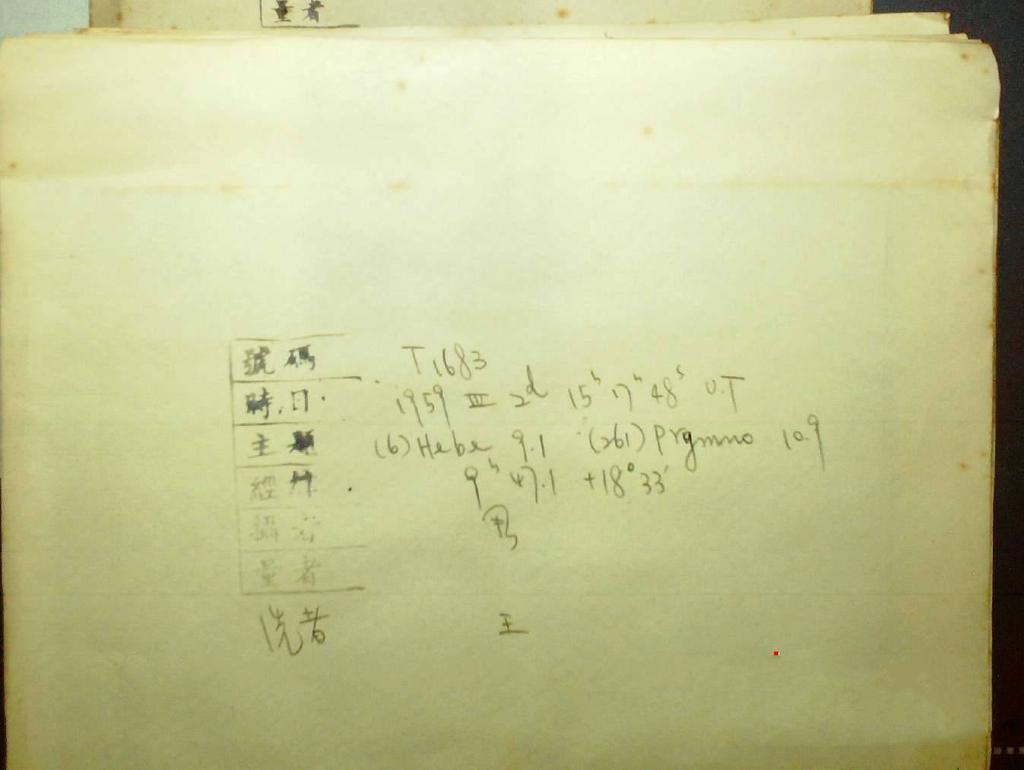 量者
號碼 T1683
時.日. 1959 III 2d 15h 17m 48s U.T
主題 (6) Hebe 9.1 (261) Prymno 10.9
經緯 9h 47.1 +18°33'
攝者
量者
洗者 王